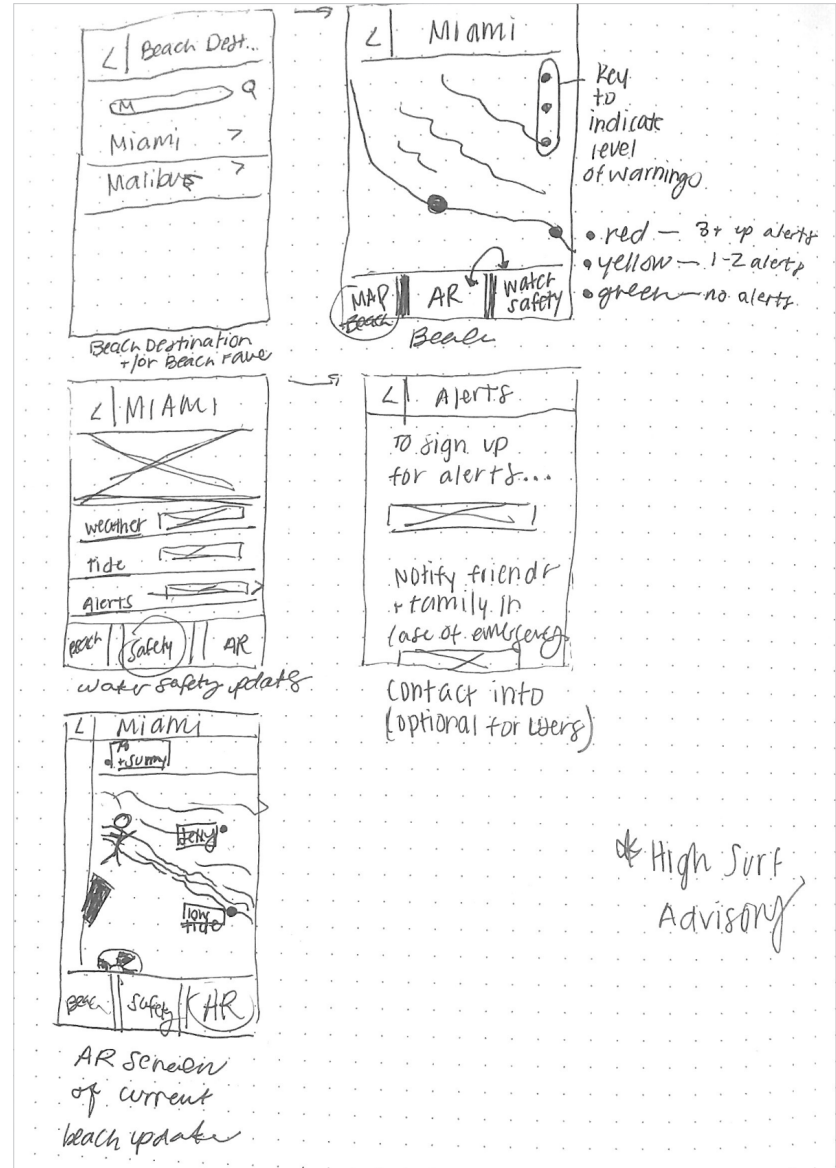 < Beach Dest...
M
Miami >
Malibu >
Beach Destination
+/or Beach
< Miami
Key
to
indicate
level
of warning
• red — 3+ up alerts
• yellow — 1-2 alerts
• green — no alerts
MAP AR water
Beach safety
Beach
< MIAMI
weather
tide
Alerts >
Beach Safety AR
water safety updates
< Alerts
To sign up
for alerts...
Notify friends
+ family in
case of emergency
Contact info
(optional for users)
< Miami
+ sunny
Jelly
low
tide
Beach Safety AR
AR screen
of current
beach update
* High Surf
Advisory